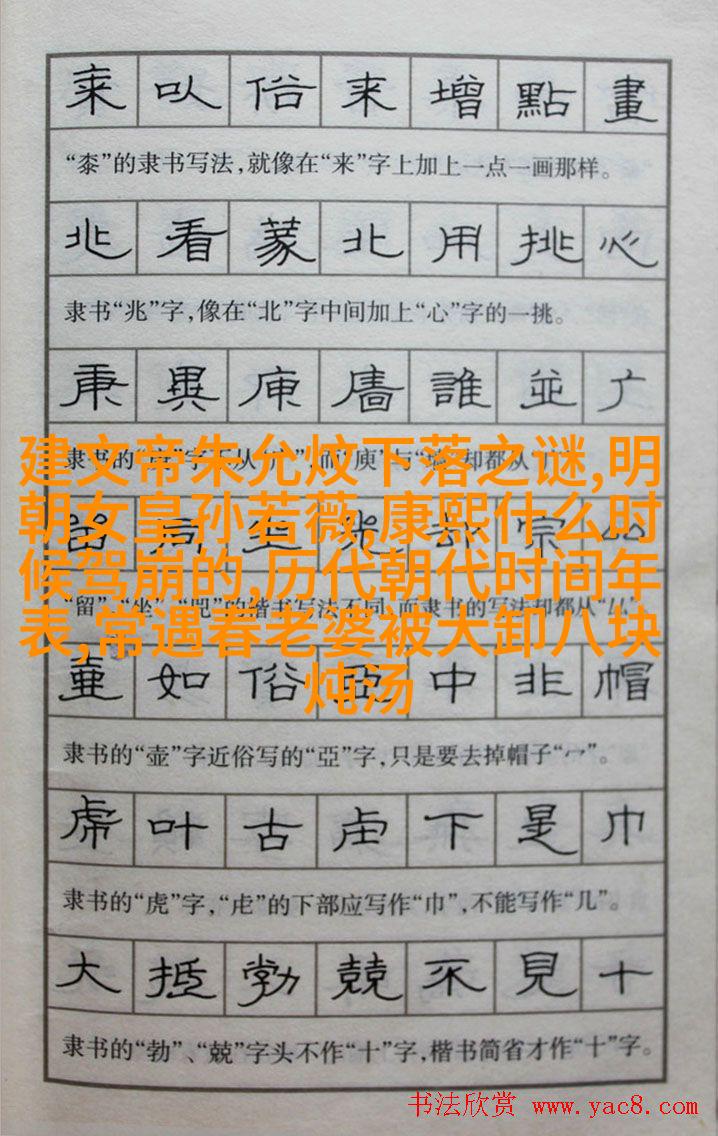 桼 以 俗 来 增 點 畫
“桼”的隶书写法,就像在“来”字上加上一点一画那样。
兆 看 北 用 挑 心
隶书“兆”字,像在“北”字中间加上“心”字的一挑。
庚 異 誰 並 广
隶书的 字不从 而“庾”与 却都从
建文帝朱允炆下落之谜,明
朝女皇孙若薇,康熙什么时
候驾崩的,历代朝代时间年
表,常遇春老婆被大卸八块
炖汤
留 同 坐 却 宗
“留”“坐” 的楷书写法不同,而隶书的写法却都从
壺 如 俗 亞 中 非 帽
隶书的“壶”字近俗写的“亞”字,只是要去掉帽子“冖”。
虎 叶 古 虍 下 是 巾
隶书的“虎”字,“虍”的下部应写作“巾”,不能写作“几”。
大 抵 勃 兢 不 見 十
隶书的“勃”、“兢”字头不作“十”字,楷书简省才作“十”字。
书法欣赏 www.yac8.com